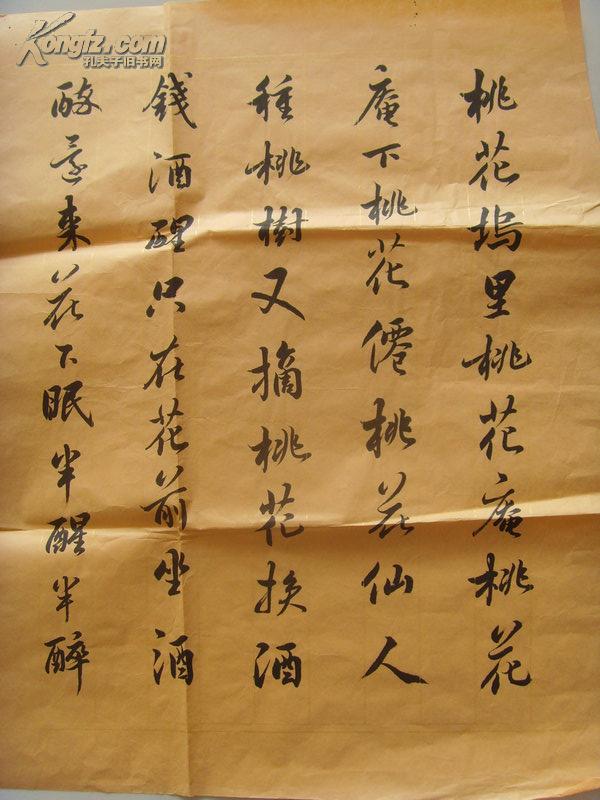 桃花塢里桃花庵桃花
庵下桃花僊桃花仙人
種桃樹又摘桃花換酒
錢酒醒只在花前坐酒
酔還來花下眠半醒半醉
Kongfz.com
孔夫子旧书网